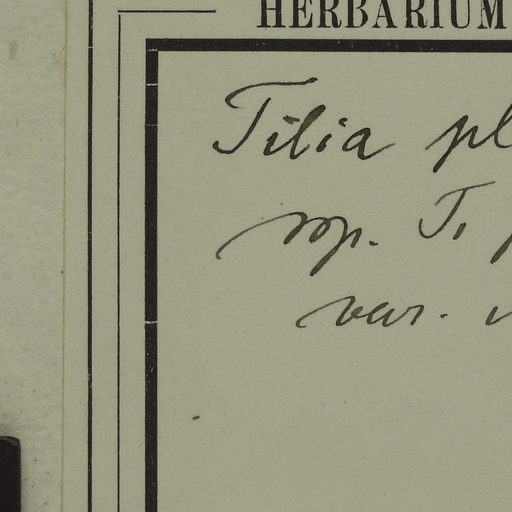 HERBARIUM
Tilia pl
ssp. T. p
var. v